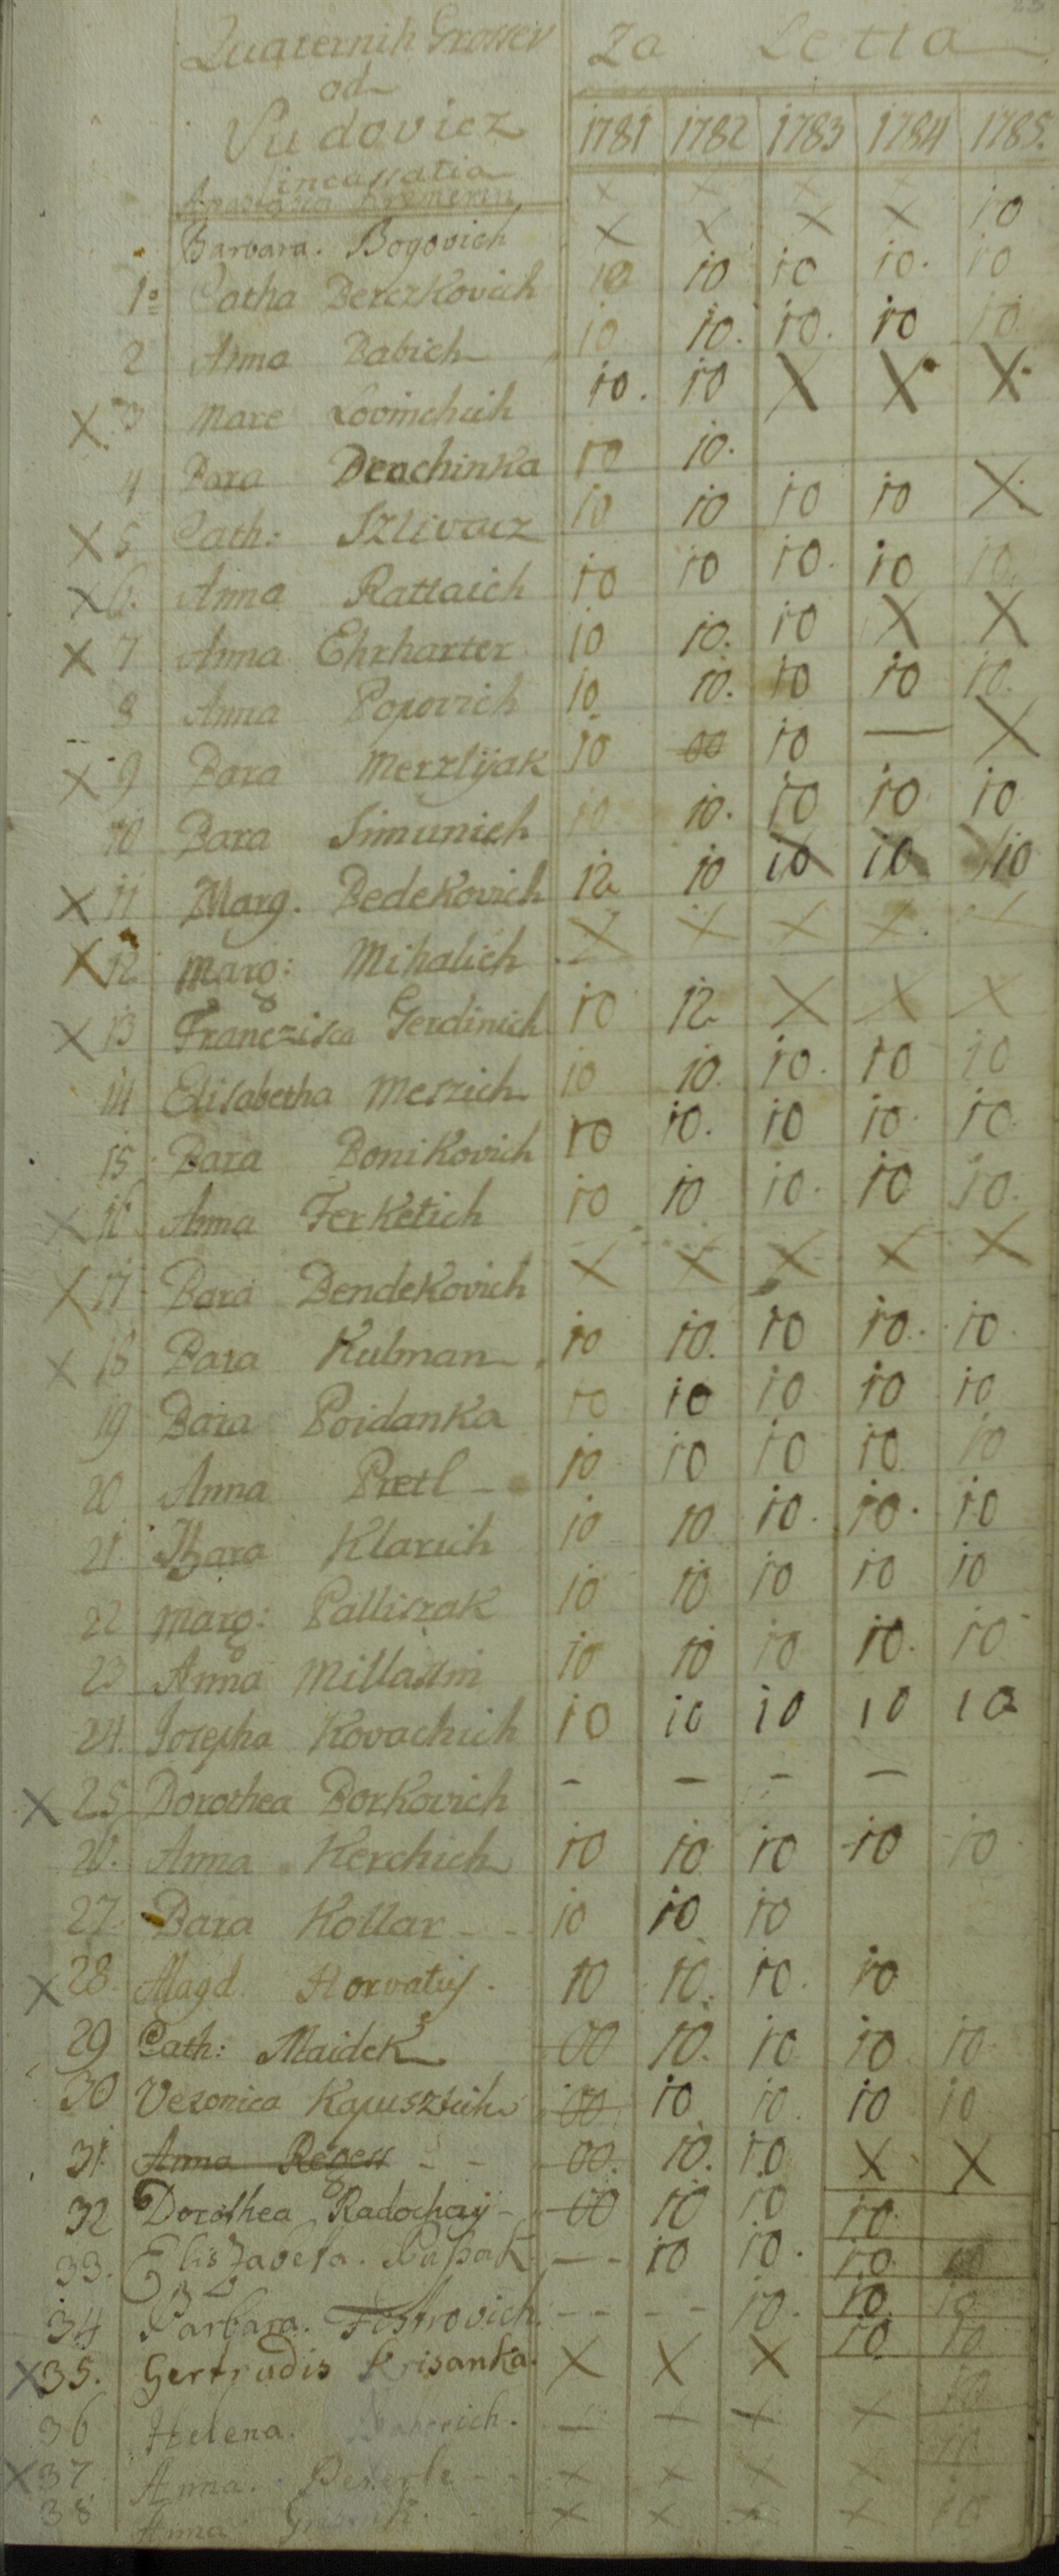 Quaternih Grossev Za Letta
od
Vudovicz 1781 1782 1783 1784 1785.
incassatia
Anastasia Kremerin x x x x 10
Barbara. Bogovich x x x x 10
1o Catha Berezkovich 10 10 10 10. 10
2 Anna Babich 10 10. 10. 10 10
X 3 Mare Lovinchich 10. 10 X X X
4 Bara Drachinka 10 10.
X 5 Cath: Szlivacz 10 10 10 10 X
X 6. Anna Rattaich 10 10 10. 10 10
X 7 Anna Ehrharter 10 10. 10 X X
8 Anna Popovich 10 10. 10 10 10.
X 9 Bara Merzlyak 10 00 10 — X
10 Bara Simunich 10 10. 10 10 10
X 11 Marg. Bedekovich 12 10 10 10 10
X 12 Marg: Mihalich X X X X X
X 13 Franczisca Gerdinich 10 12 X X X
14 Elisabetha Merzich 10 10. 10. 10 10
15 Bara Bonikovich 10 10. 10 10. 10.
X 16 Anna Ferketich 10 10 10. 10 10.
X 17 Bara Bendekovich X X X X X
X 18 Bara Kulman 10 10. 10 10. 10
19 Bara Poidanka 10 10 10 10 10
20 Anna Pretl - 10 10 10 10 10
21 Bara Klarich 10 10 10. 10. 10
22 Marg: Palliszak 10 10 10 10 10
23 Anna Millassin 10 10 10 10. 10
24. Josepha Kovachich 10 10 10 10 10
X 25 Dorothea Borkovich - - - -
26. Anna Kerchich 10 10 10 10 10
27 Bara Kollar - - 10 10 10
X 28 Magd. Horvatij. 10 10. 10. 10
29 Cath: Maidek 00 10. 10 10 10
30 Veronica Kapuszich 00 10 10. 10 10
31 Anna Regess - - 00. 10. 10 X X
32 Dorothea Radochaij - 00 10 10 10
33. Elisзabeta. - - 10 10. 10
34 Barbara. - - - - 10. 10. 10
X 35. Gertrudis Krisanka. X X X 10 10
36 Helena. x x x 10
X 37 Anna. x x x x 10
38 Anna x x x x 10